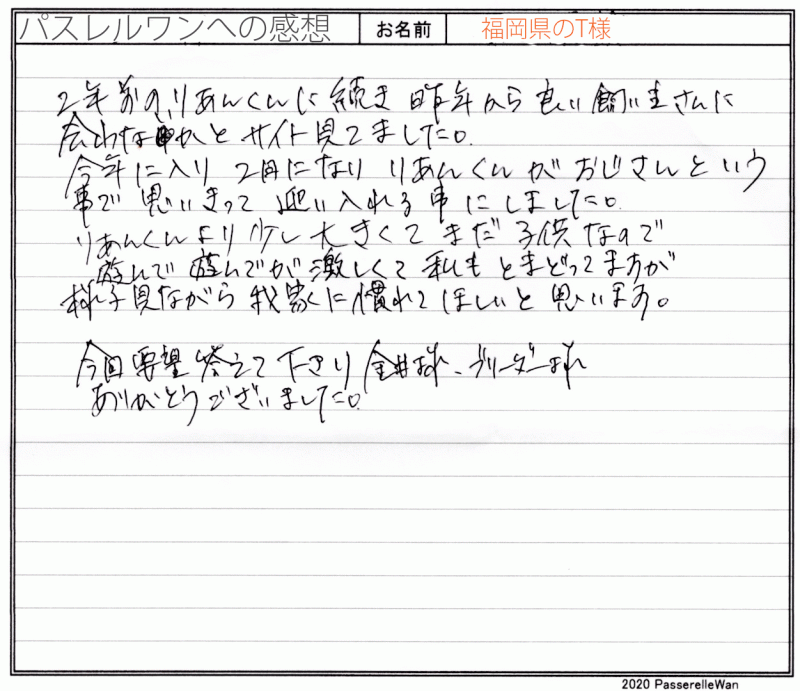 パスレルワンへの感想 お名前 福岡県のT様
2年前のりあんくんに続き 昨年から 良い飼い主さんに
会わないかと サイト見てました。
今年に入り 2月になり りあんくんが おじさんという
事で 思いきって 迎い入れる事にしました。
りあんくんより 少し大きくて まだ子供なので
遊んで遊んでが激しくて 私も とまどってますが
様子見ながら 我家に慣れて ほしいと 思います。
今回要望答えて下さり 金井様、ブリーダー様
ありがとうございました。
2020 PasserelleWan